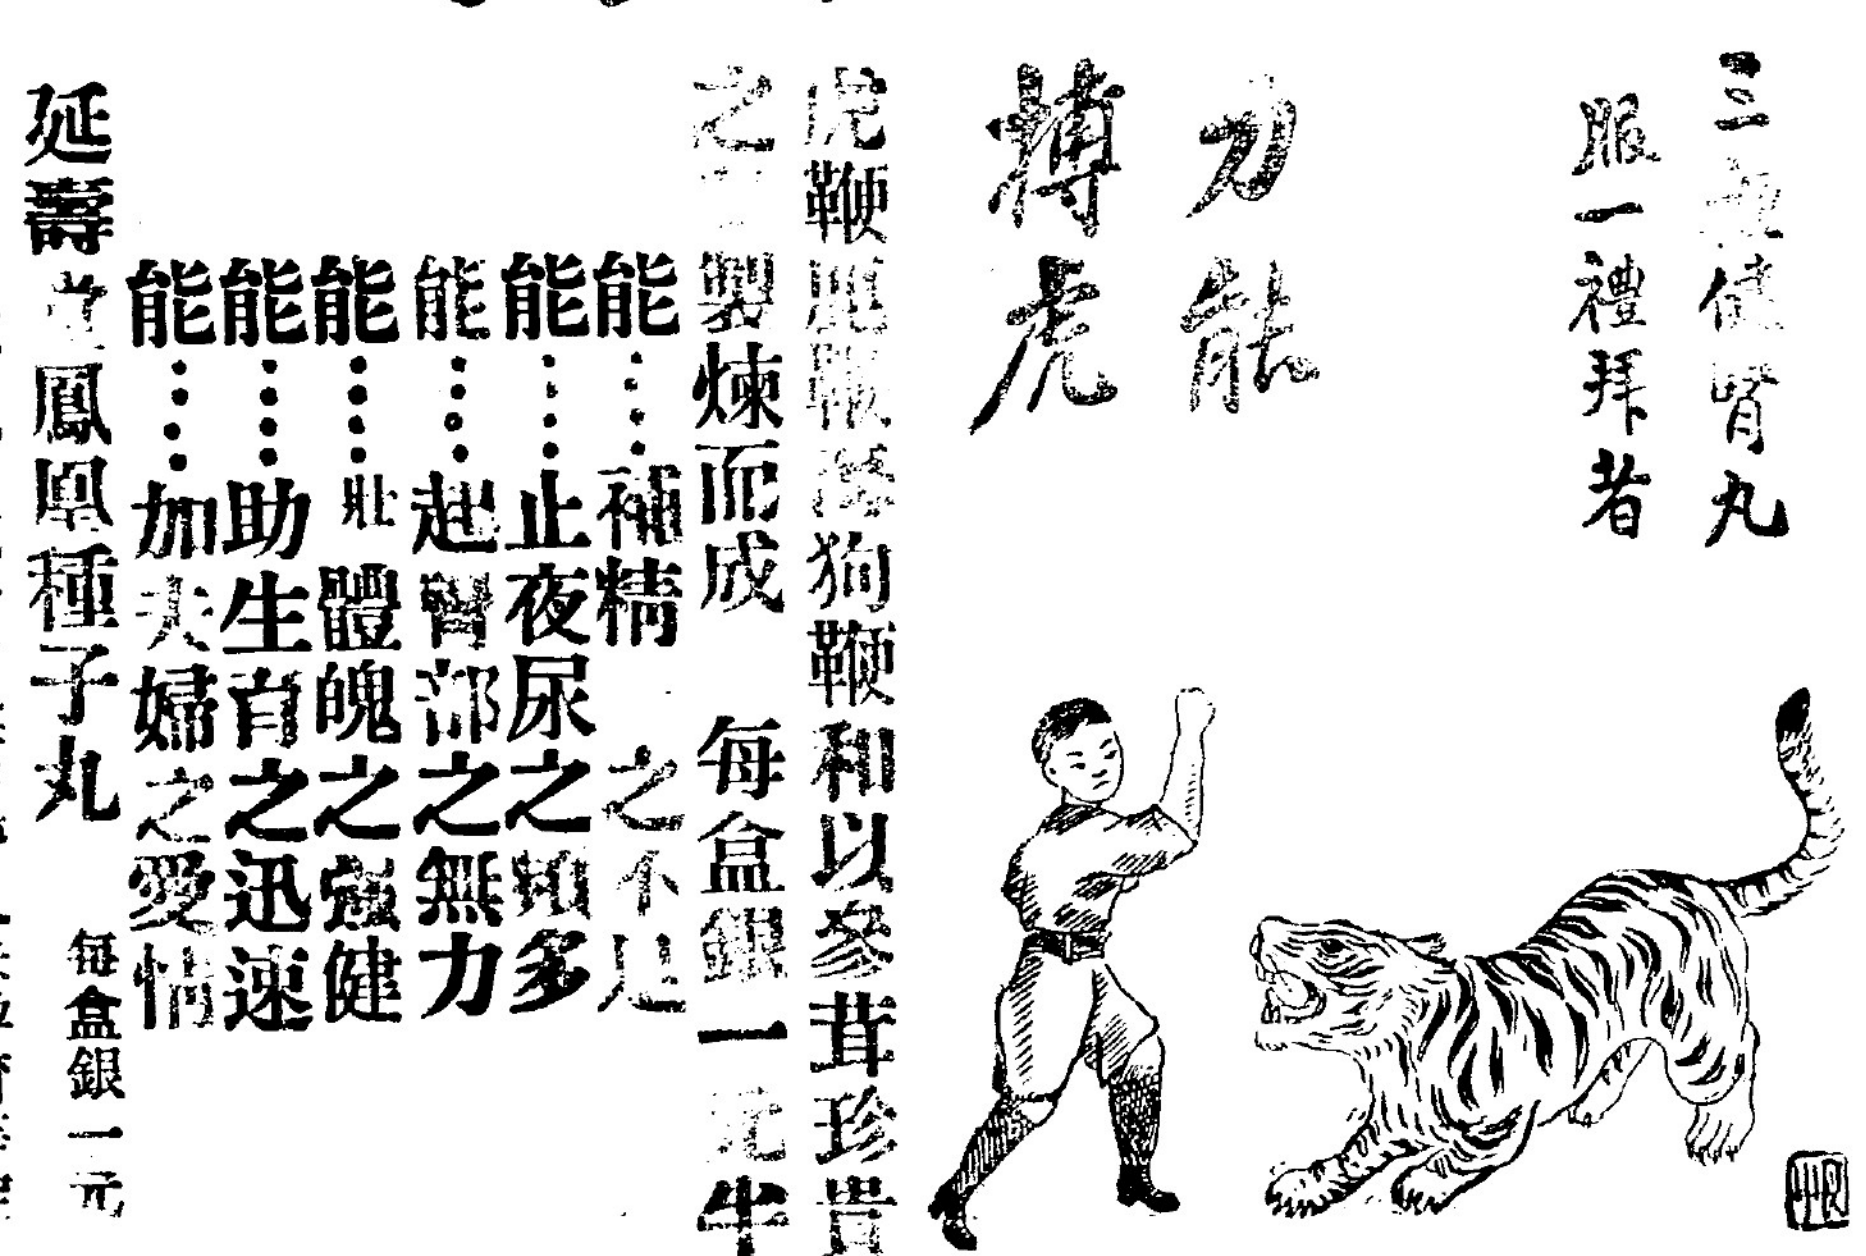 三鞭健腎丸
服一禮拜者
力能
搏虎
虎鞭鹿鞭海狗鞭和以參茸珍貴
之 製煉而成 每盒銀一元半
能……補精 之不足
能……止夜尿之頻多
能……起腎部之無力
能……壯體魄之强健
能……助生育之迅速
能……加夫婦之愛情
延壽堂鳳凰種子丸 每盒銀一元